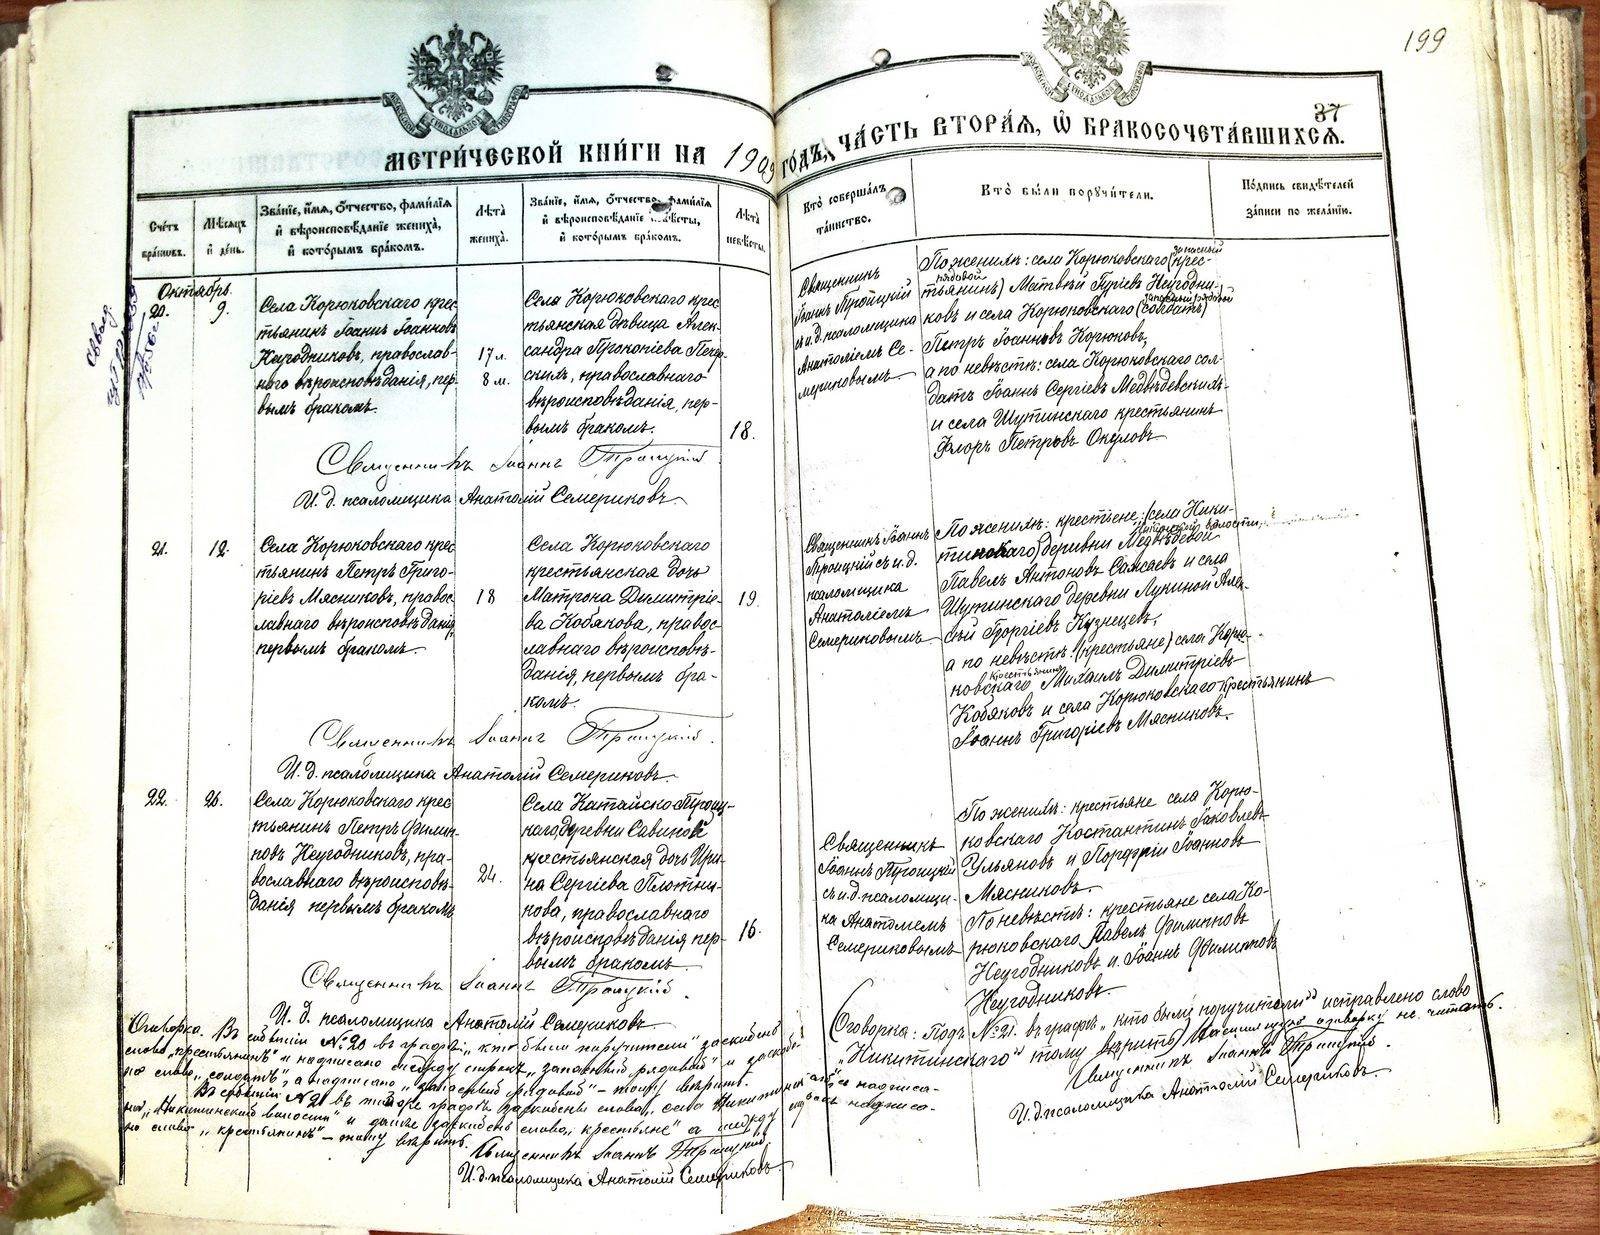 199
37
МЕТРИ́ЧЕСКОЙ КНИ́ГИ НА 1909 ГО́ДЪ, ЧА́СТЬ ВТОРА́Я, Ѽ БРАКОСОЧЕТА́ВШИХСЯ.
Сче́тъ
бра́ковъ.
Мѣ́сяцъ
и҆ де́нь.
Зва́нїе, и҆́мя, о҆́тчество, фами́лїя
и҆ вѣроисповѣ́данїе жениха̀,
и҆ кото́рымъ бра́комъ.
Лѣ́та
жениха̀.
Зва́нїе, и҆́мя, о҆́тчество, фами́лїя
и҆ вѣроисповѣ́данїе невѣ́сты,
и҆ кото́рымъ бра́комъ.
Лѣ́та
невѣ́сты.
Кто̀ соверша́лъ
та́инство.
Кто̀ бы́ли поручи́тели.
По́дпись свидѣ́телей
за́писи по жела́нїю.
Октябрь.
20.
9.
Села Корюковскаго крес
тьянинъ Іоаннъ Іоанновъ
Неугодниковъ, православ-
наго вѣроисповѣданія, пер
вымъ бракомъ.
17 л.
8 м.
Села Корюковскаго крес
тьянская дѣвица Алек-
сандра Прокопіева
православнаго
вѣроисповѣданія, пер-
вымъ бракомъ.
18.
Священникъ
Іоаннъ Троицкій
съ и.д. псаломщика
Анатоліемъ Се-
мериковымъ.
По женихѣ: села Корюковскаго (крес-
запасный
рядовой
тьянинъ) Матвѣй Гуріевъ Неугодни-
ковъ и села Корюковскаго (солдатъ)
запасный рядовой
Петръ Іоанновъ Корюковъ,
а по невѣстѣ: села Корюковскаго сол-
датъ Іоаннъ Сергіевъ Медвѣдевскихъ
и села Шутинскаго крестьянинъ
Флоръ Петровъ Окуловъ
Священникъ Іоаннъ Троицкій
И. д. псаломщика Анатолій Семериковъ.
21.
12.
Села Корюковскаго крес
тьянинъ Петръ Григо-
ріевъ Мясниковъ, правос
лавнаго вѣроисповѣданія,
первымъ бракомъ.
18
Села Корюковскаго
крестьянская дочь
Матрона Димитріе-
ва Кобякова, правос-
лавнаго вѣроисповѣ-
данія, первымъ бра-
комъ.
19.
Священникъ Іоаннъ
Троицкій съ и.д.
псаломщика
Анатоліемъ
Семериковымъ
По женихѣ: крестьяне: (села Ники-
тинскаго) деревни Медвѣдевой
Никитинской волости,
Павелъ Антоновъ и села
Шутинскаго деревни Лукиной Алек-
сѣй Георгіевъ Кузнецовъ,
а по невѣстѣ: (крестьяне) села Корю-
крестьянинъ
ковскаго Михаилъ Димитріевъ
Кобяковъ и села Корюковскаго крестьянинъ
Іоаннъ Григоріевъ Мясниковъ.
Священникъ Іоаннъ Троицкій.
И. д. псаломщика Анатолій Семериковъ.
22.
26.
Села Корюковскаго крес
тьянинъ Петръ Филип-
повъ Неугодниковъ, пра-
вославнаго вѣроисповѣ-
данія первымъ бракомъ
24.
Села Катайско-Троиц-
каго, деревни Савиной
крестьянская дочь Ири-
на Сергіева Плотни-
кова, православнаго
вѣроисповѣданія пер-
вымъ бракомъ.
16.
Священникъ
Іоаннъ Троицкій
съ и.д. псаломщи-
ка Анатоліемъ
Семериковымъ
По женихѣ: крестьяне села Корю-
ковскаго Костантинъ Іаковлевъ
Ульяновъ и Порфирій Іоанновъ
Мясниковъ.
По невѣстѣ: крестьяне села Ко-
рюковскаго Павелъ Филипповъ
Неугодниковъ и Іоаннъ Филипповъ
Неугодниковъ.
Священникъ Іоаннъ Троицкій.
И. д. псаломщика Анатолій Семериковъ
Оговорка. Въ событіи № 20 въ графѣ „кто были поручители" заскоблено
слово „крестьянинъ" и надписано между строкъ „запасный рядовой" и заскобле-
но слово „солдатъ", а надписано „запасный рядовой" – тому вѣрить.
Въ событіи № 21 въ той же графѣ заскоблены слова „села Никитинскаго" а надписа-
но „Никитинской волости" и далѣе заскоблено слово „крестьяне" а между надписа-
но слово „крестьянинъ" – тому вѣрить.
Священникъ Іоаннъ Троицкій
И. д. псаломщика Анатолій Семериковъ
Оговорка: Подъ № 21. въ графѣ „кто были поручители" исправлено слово
„Никитинскаго" тому вѣрить, оговорку не читать.
Священникъ Іоаннъ Троицкій.
И. д. псаломщика Анатолій Семериковъ.